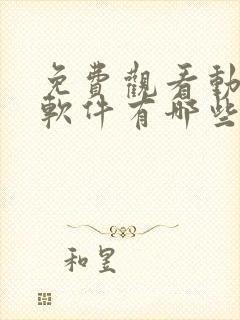 免費觀看動
軟件有哪些
和昱